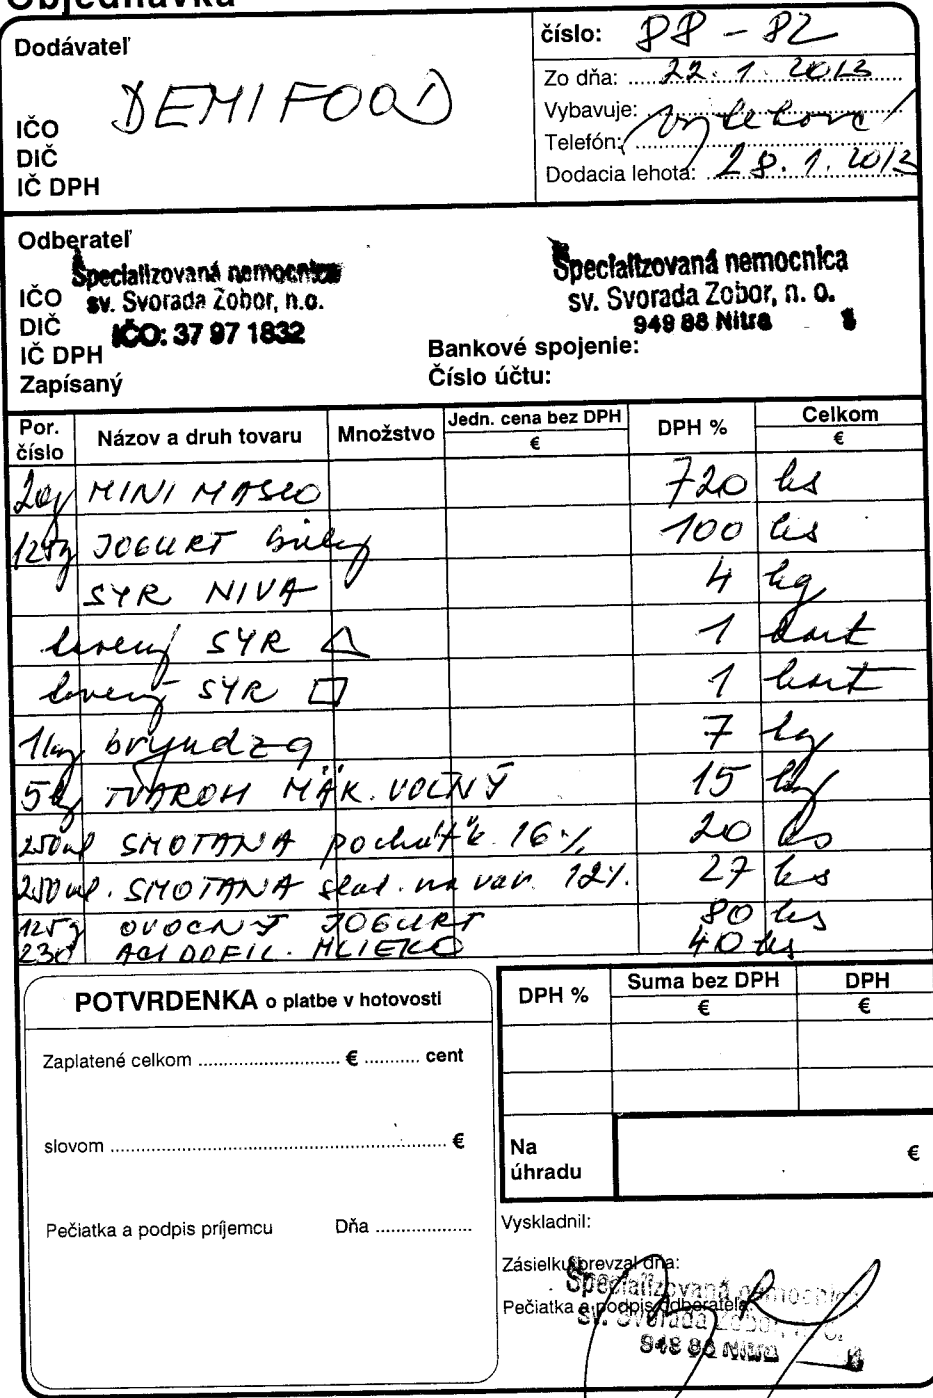 Objednávka
Dodávateľ
DEMIFOOD
IČO
DIČ
IČ DPH
číslo: PP - 82
Zo dňa: 22. 1. 2013
Vybavuje:
Telefón:
Dodacia lehota: 28. 1. 2013
Odberateľ
Špecializovaná nemocnica
sv. Svorada Zobor, n.o.
IČO: 37 97 1832
IČO
DIČ
IČ DPH
Zapísaný
Špecializovaná nemocnica
sv. Svorada Zobor, n. o.
949 88 Nitra
Bankové spojenie:
Číslo účtu:
Por. číslo Názov a druh tovaru Množstvo Jedn. cena bez DPH € DPH % Celkom €
20g MINI MASLO 720 ks
125g JOGURT biely 100 ks
SYR NIVA 4 kg
tavený SYR △ 1 kart
tavený SYR □ 1 kart
1kg bryndza 7 kg
5kg TVAROH MÄK. VOĽNÝ 15 kg
250ml SMOTANA pochúťk. 16% 20 ks
250ml. SMOTANA slad. na var. 12%. 27 ks
125g OVOCNÝ JOGURT 80 ks
230 ACIDOFIL. MLIEKO 40 ks
POTVRDENKA o platbe v hotovosti
Zaplatené celkom € cent
slovom €
Pečiatka a podpis príjemcu Dňa
DPH % Suma bez DPH € DPH €
Na úhradu €
Vyskladnil:
Zásielku prevzal dňa:
Pečiatka a podpis odberateľa:
Špecializovaná nemocnica
sv. Svorada Zobor, n. o.
949 88 Nitra